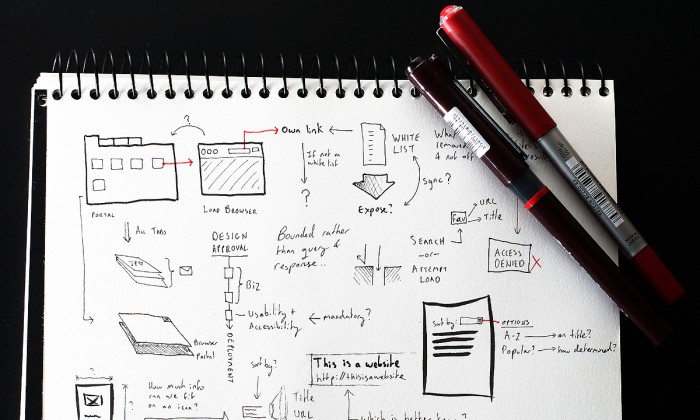 ?
Own link
WHITE
LIST
What
If not on
whitelist
sync?
?
Expose?
PORTAL
LOAD BROWSER
URL
Title
Fav
ALL TABS
DESIGN
APPROVAL
Bounded rather
than query &
response...
SEARCH
-or-
ATTEMPT
LOAD
ACCESS
DENIED
X
BIZ
Usability +
Accessibility
mandatory?
DEPLOYMENT
Browser
Portal
sort by:
OPTIONS
A-Z
on title?
Popular?
how determined?
Sort by?
This is a website
http://thisisawebsite
?
How much info
can we fit
on an icon?
?
Title
URL
Which is better